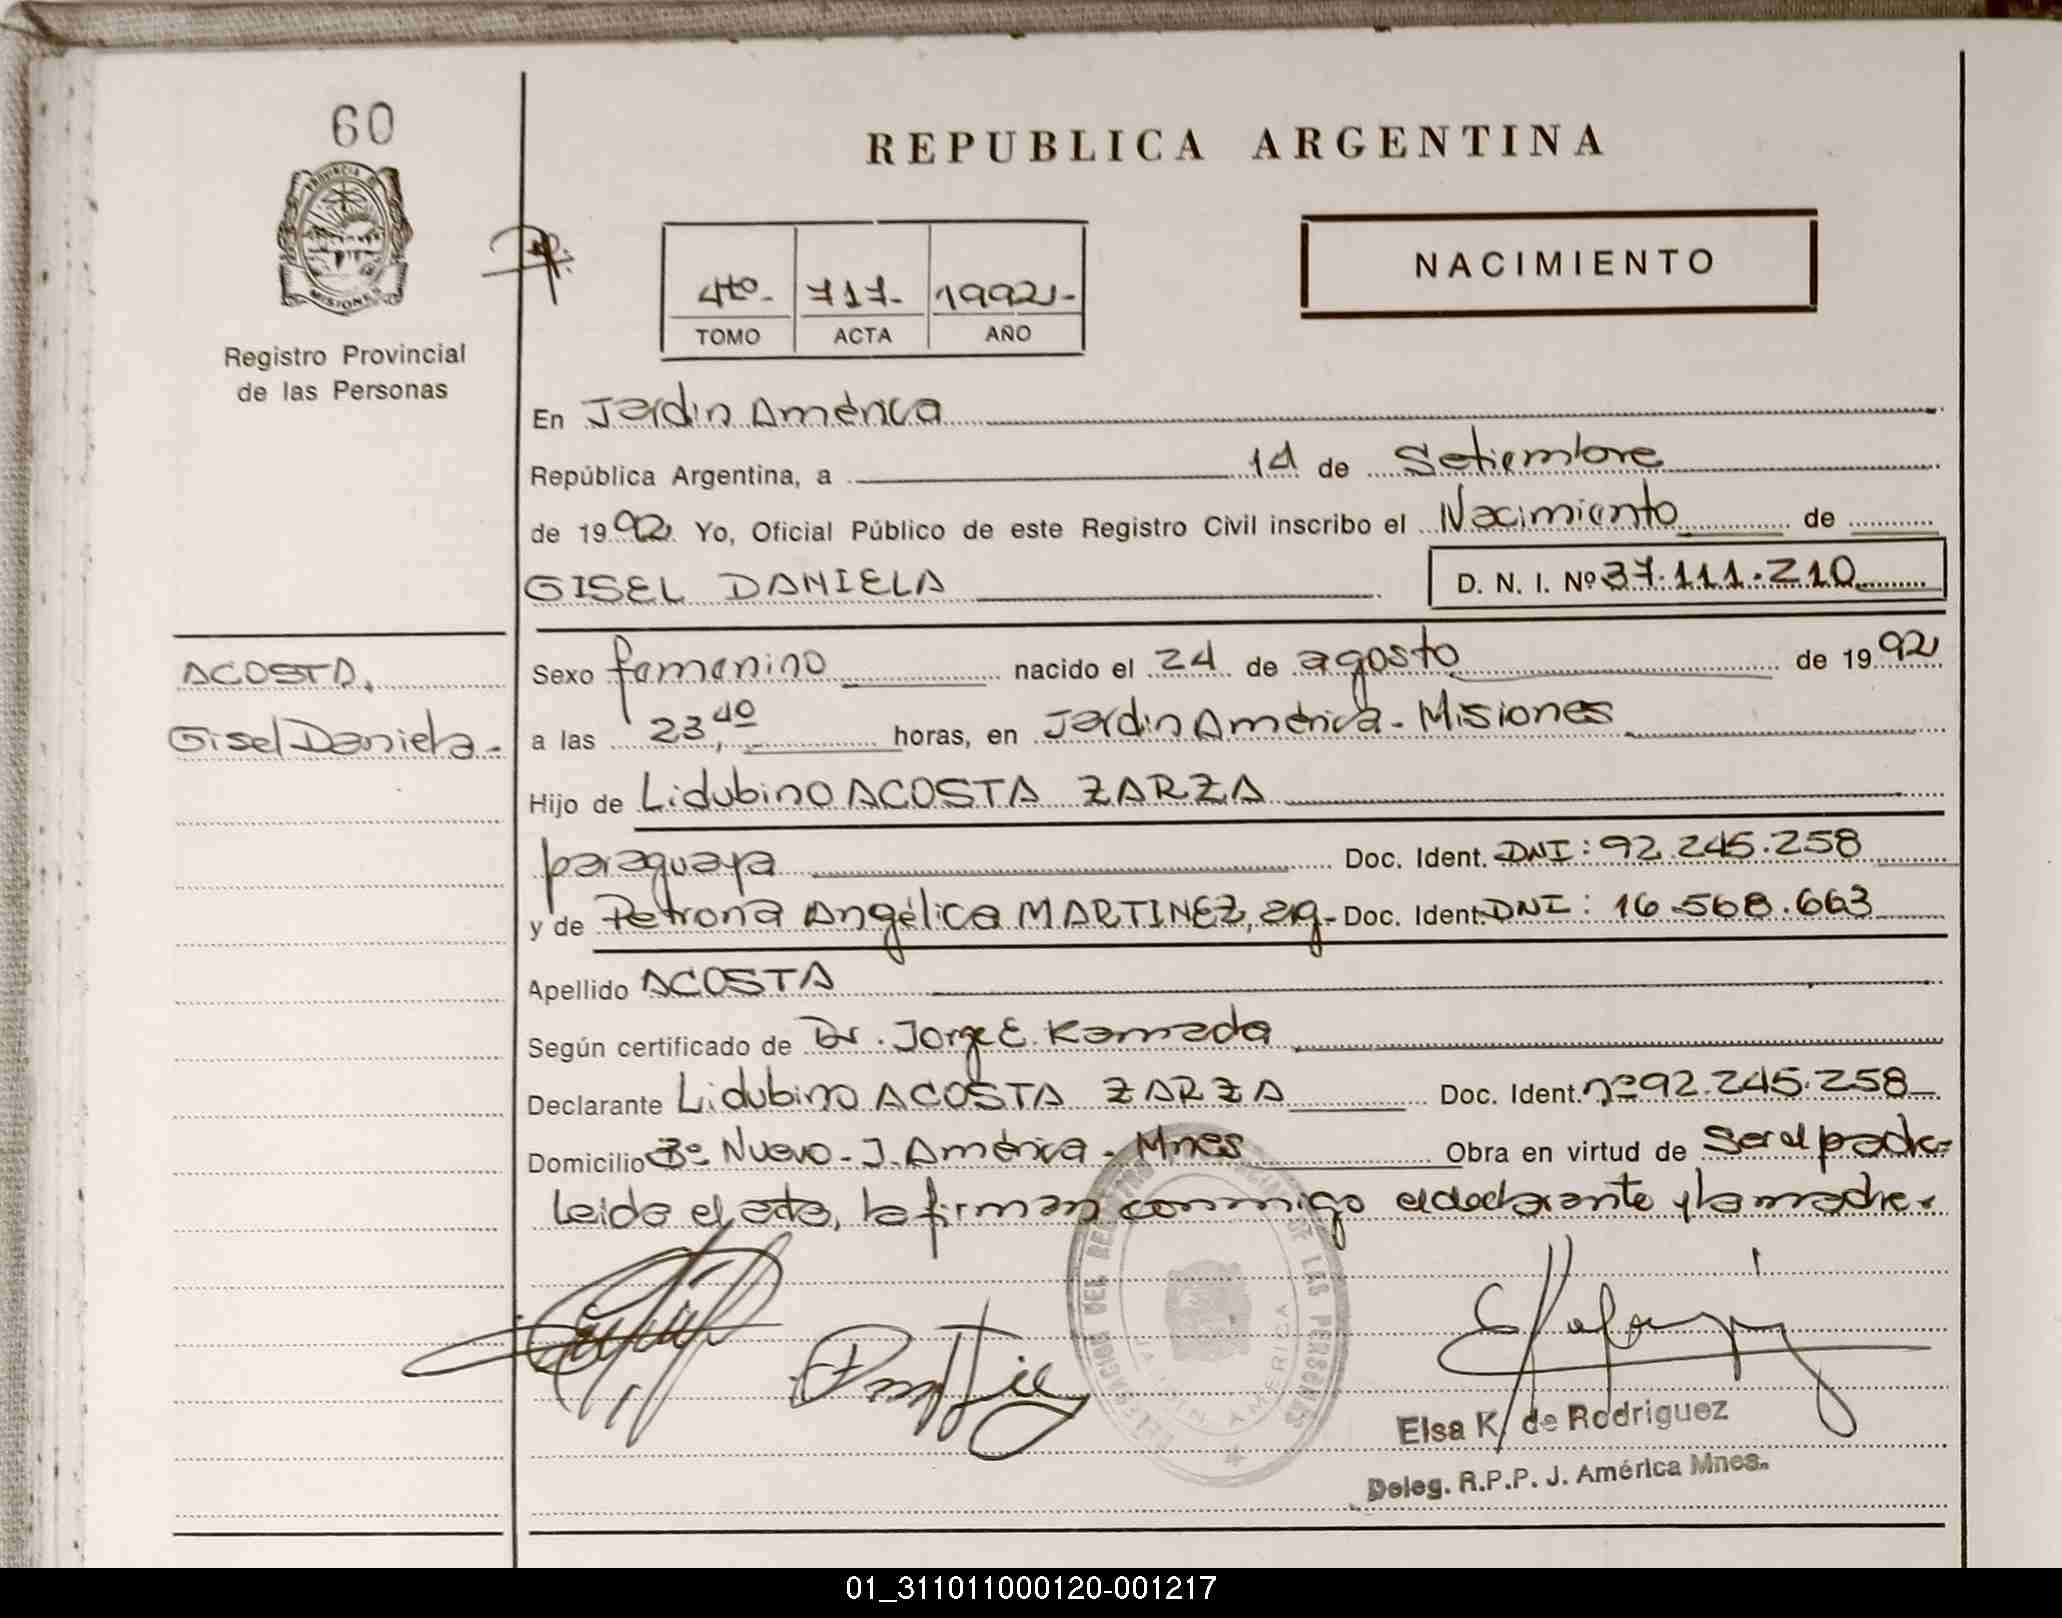 60
PROVINCIA DE
MISIONES
Registro Provincial
de las Personas
REPUBLICA ARGENTINA
NACIMIENTO
4to- 717- 1992-
TOMO ACTA AÑO
En Jardin América
República Argentina, a 14 de Setiembre
de 1992 Yo, Oficial Público de este Registro Civil inscribo el Nacimiento de
GISEL DANIELA D. N. I. Nº 37.111.210
ACOSTA,
Gisel Daniela.-
Sexo femenino nacido el 24 de agosto de 1992
a las 23,40 horas, en Jardin América - Misiones
Hijo de Lidubino ACOSTA ZARZA
paraguaya Doc. Ident. DNI: 92.245.258
y de Petrona Angélica MARTINEZ, arg- Doc. Ident. DNI: 16.568.663
Apellido ACOSTA
Según certificado de Dr. Jorge E. Kamada
Declarante Lidubino ACOSTA ZARZA Doc. Ident. nº 92.245.258
Domicilio Bº Nuevo - J. América - Mnes Obra en virtud de Ser el padre
Leida el acta, la firman conmigo el declarante y la madre.
DELEGACION DEL REGISTRO PROVINCIAL DE LAS PERSONAS
JARDIN AMERICA
Elsa K. de Rodriguez
Deleg. R.P.P. J. América Mnes.
01_311011000120-001217